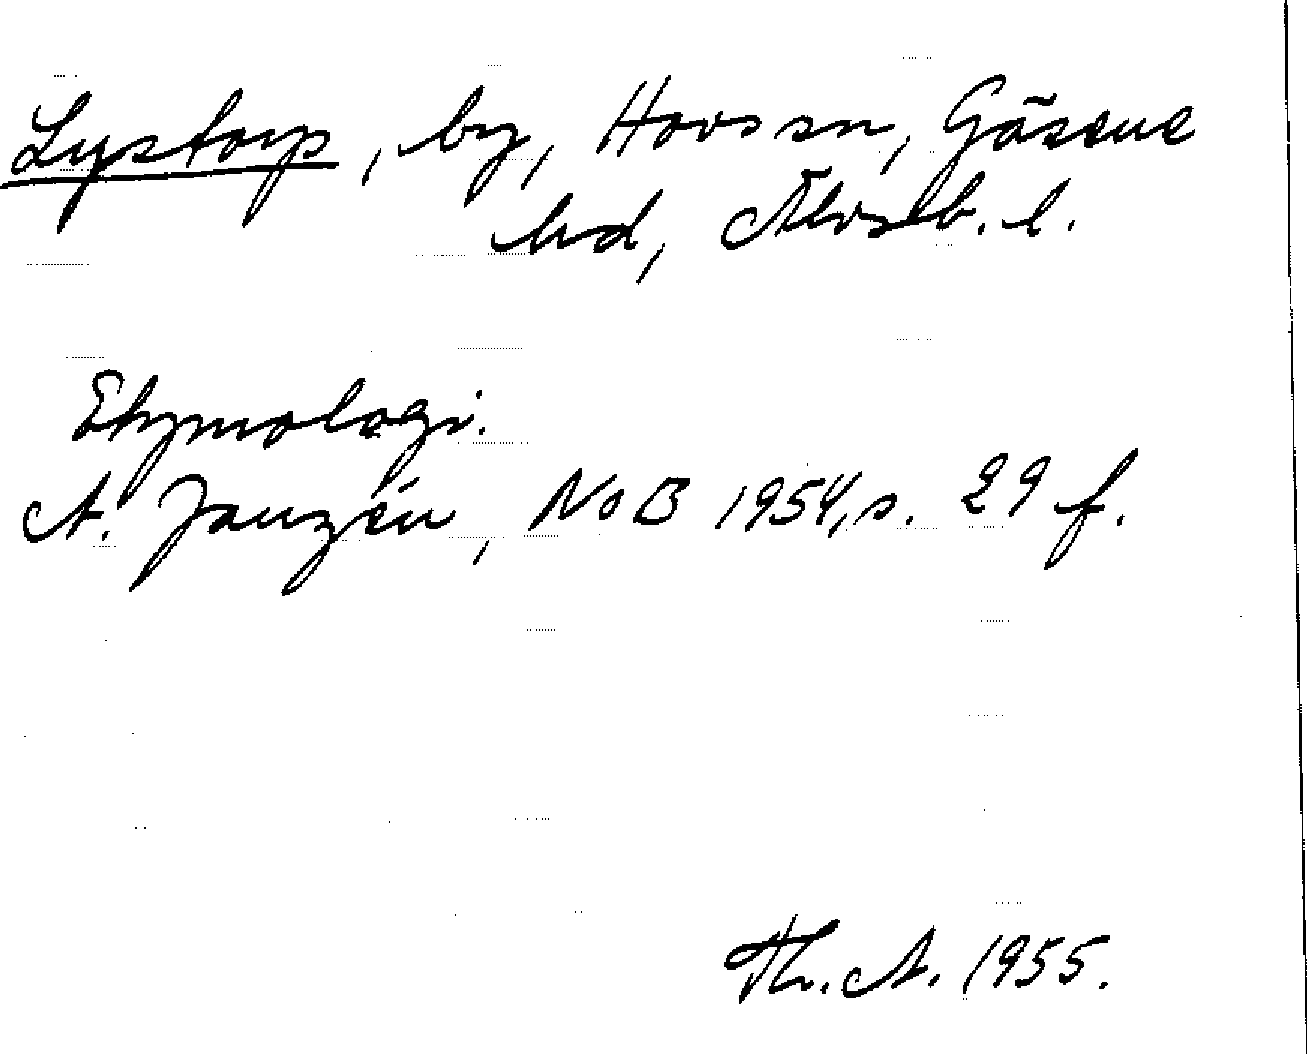 Lystorp, by, Hovs sn, Gäsene
hd, Älvsb. l.
Etymologi.
A. Janzén, NoB 1954, s. 29 f.
Th. A. 1955.